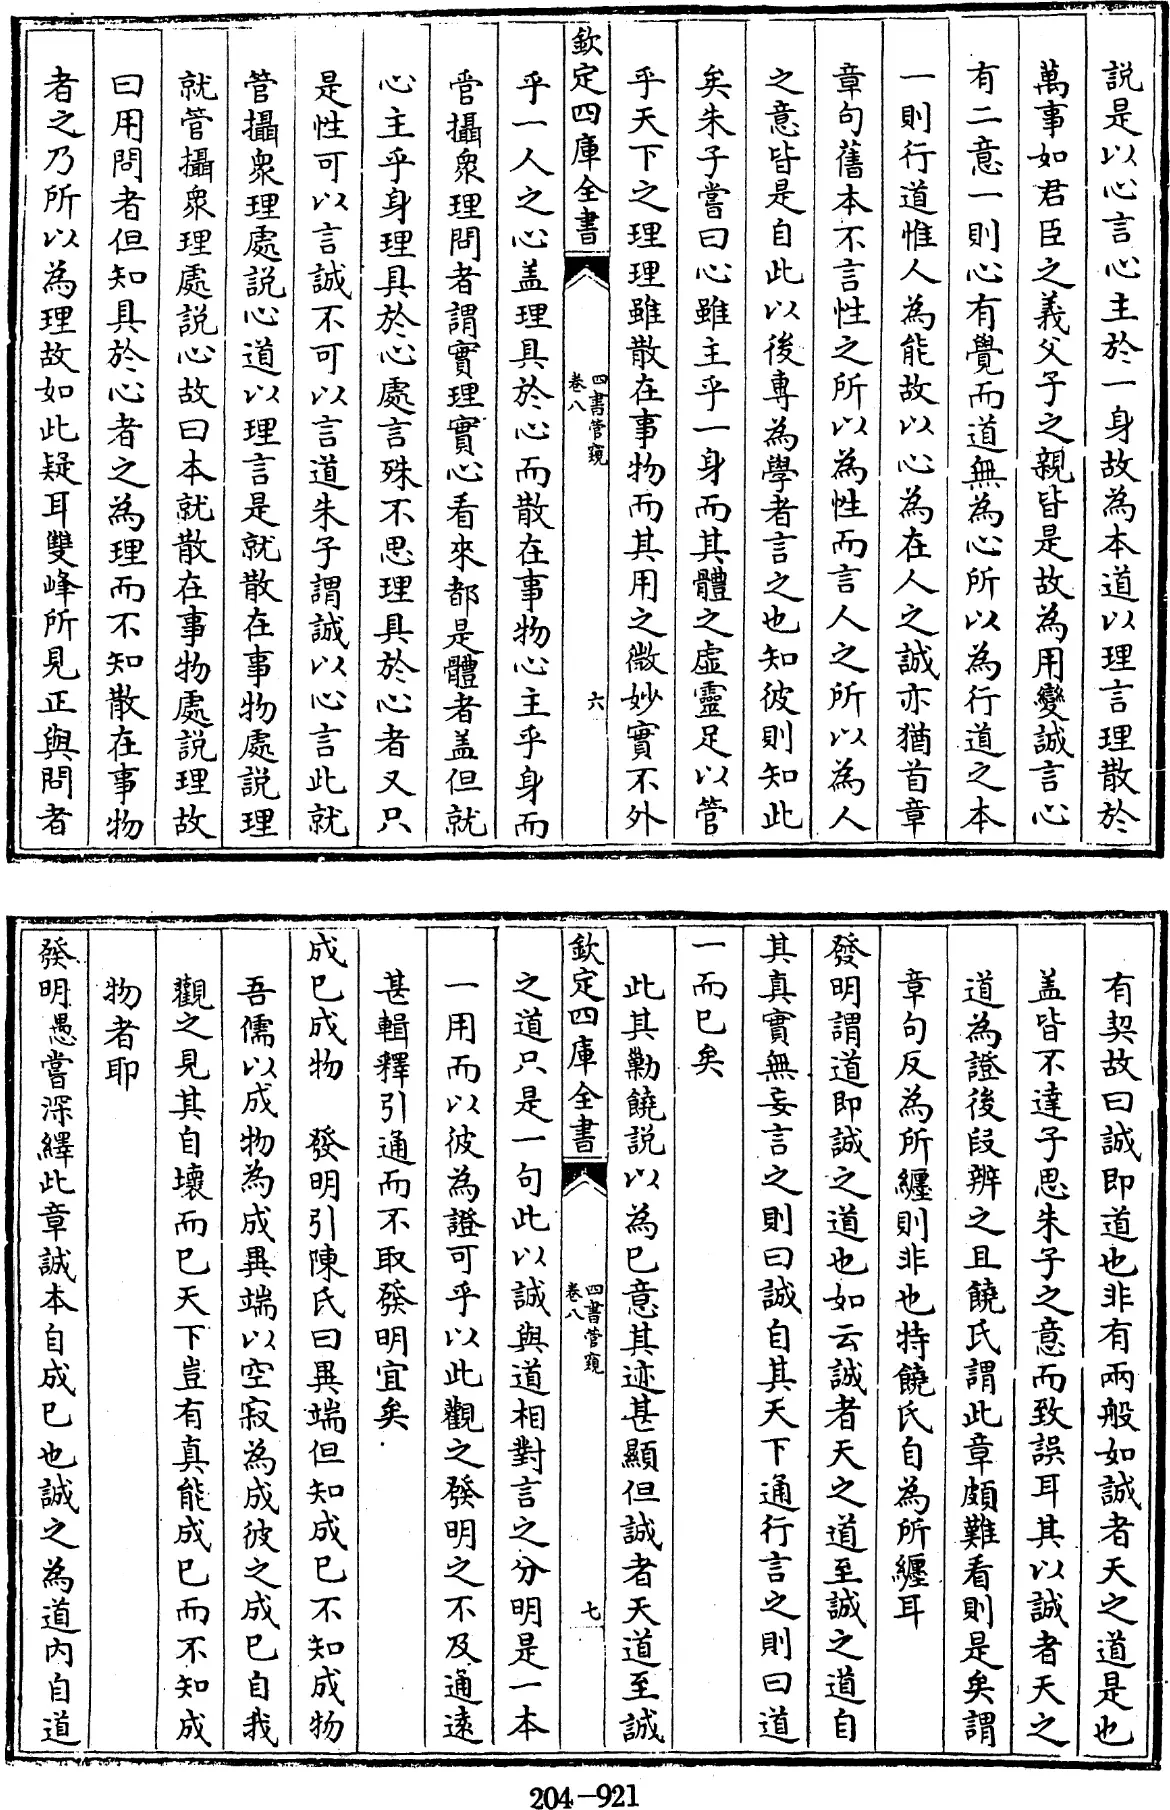 説是以心言心主於一身故為本道以理言理散於
萬事如君臣之義父子之親皆是故為用變誠言心
有二意一則心有覺而道無為心所以為行道之本
一則行道惟人為能故以心為在人之誠亦猶首章
章句舊本不言性之所以為性而言人之所以為人
之意皆是自此以後專為學者言之也知彼則知此
矣朱子嘗曰心雖主乎一身而其體之虛靈足以管
乎天下之理理雖散在事物而其用之微妙實不外
欽定四庫全書
四書管窺
卷八
六
乎一人之心盖理具於心而散在事物心主乎身而
管攝衆理問者謂實理實心看來都是體者盖但就
心主乎身理具於心處言殊不思理具於心者又只
是性可以言誠不可以言道朱子謂誠以心言此就
管攝衆理處説心道以理言是就散在事物處説理
就管攝衆理處説心故曰本就散在事物處説理故
曰用問者但知具於心者之為理而不知散在事物
者之乃所以為理故如此疑耳雙峰所見正與問者
有契故曰誠即道也非有兩般如誠者天之道是也
盖皆不達子思朱子之意而致誤耳其以誠者天之
道為證後段辨之且饒氏謂此章頗難看則是矣謂
章句反為所纏則非也特饒氏自為所纏耳
發明謂道即誠之道也如云誠者天之道至誠之道自
其真實無妄言之則曰誠自其天下通行言之則曰道
一而已矣
此其勦饒説以為已意其迹甚顯但誠者天道至誠
欽定四庫全書
四書管窺
卷八
七
之道只是一句此以誠與道相對言之分明是一本
一用而以彼為證可乎以此觀之發明之不及通遠
甚輯釋引通而不取發明宜矣
成已成物　發明引陳氏曰異端但知成已不知成物
吾儒以成物為成異端以空寂為成彼之成已自我
觀之見其自壞而已天下豈有真能成已而不知成
物者耶
發明愚嘗深繹此章誠本自成已也誠之為道内自道
204-921